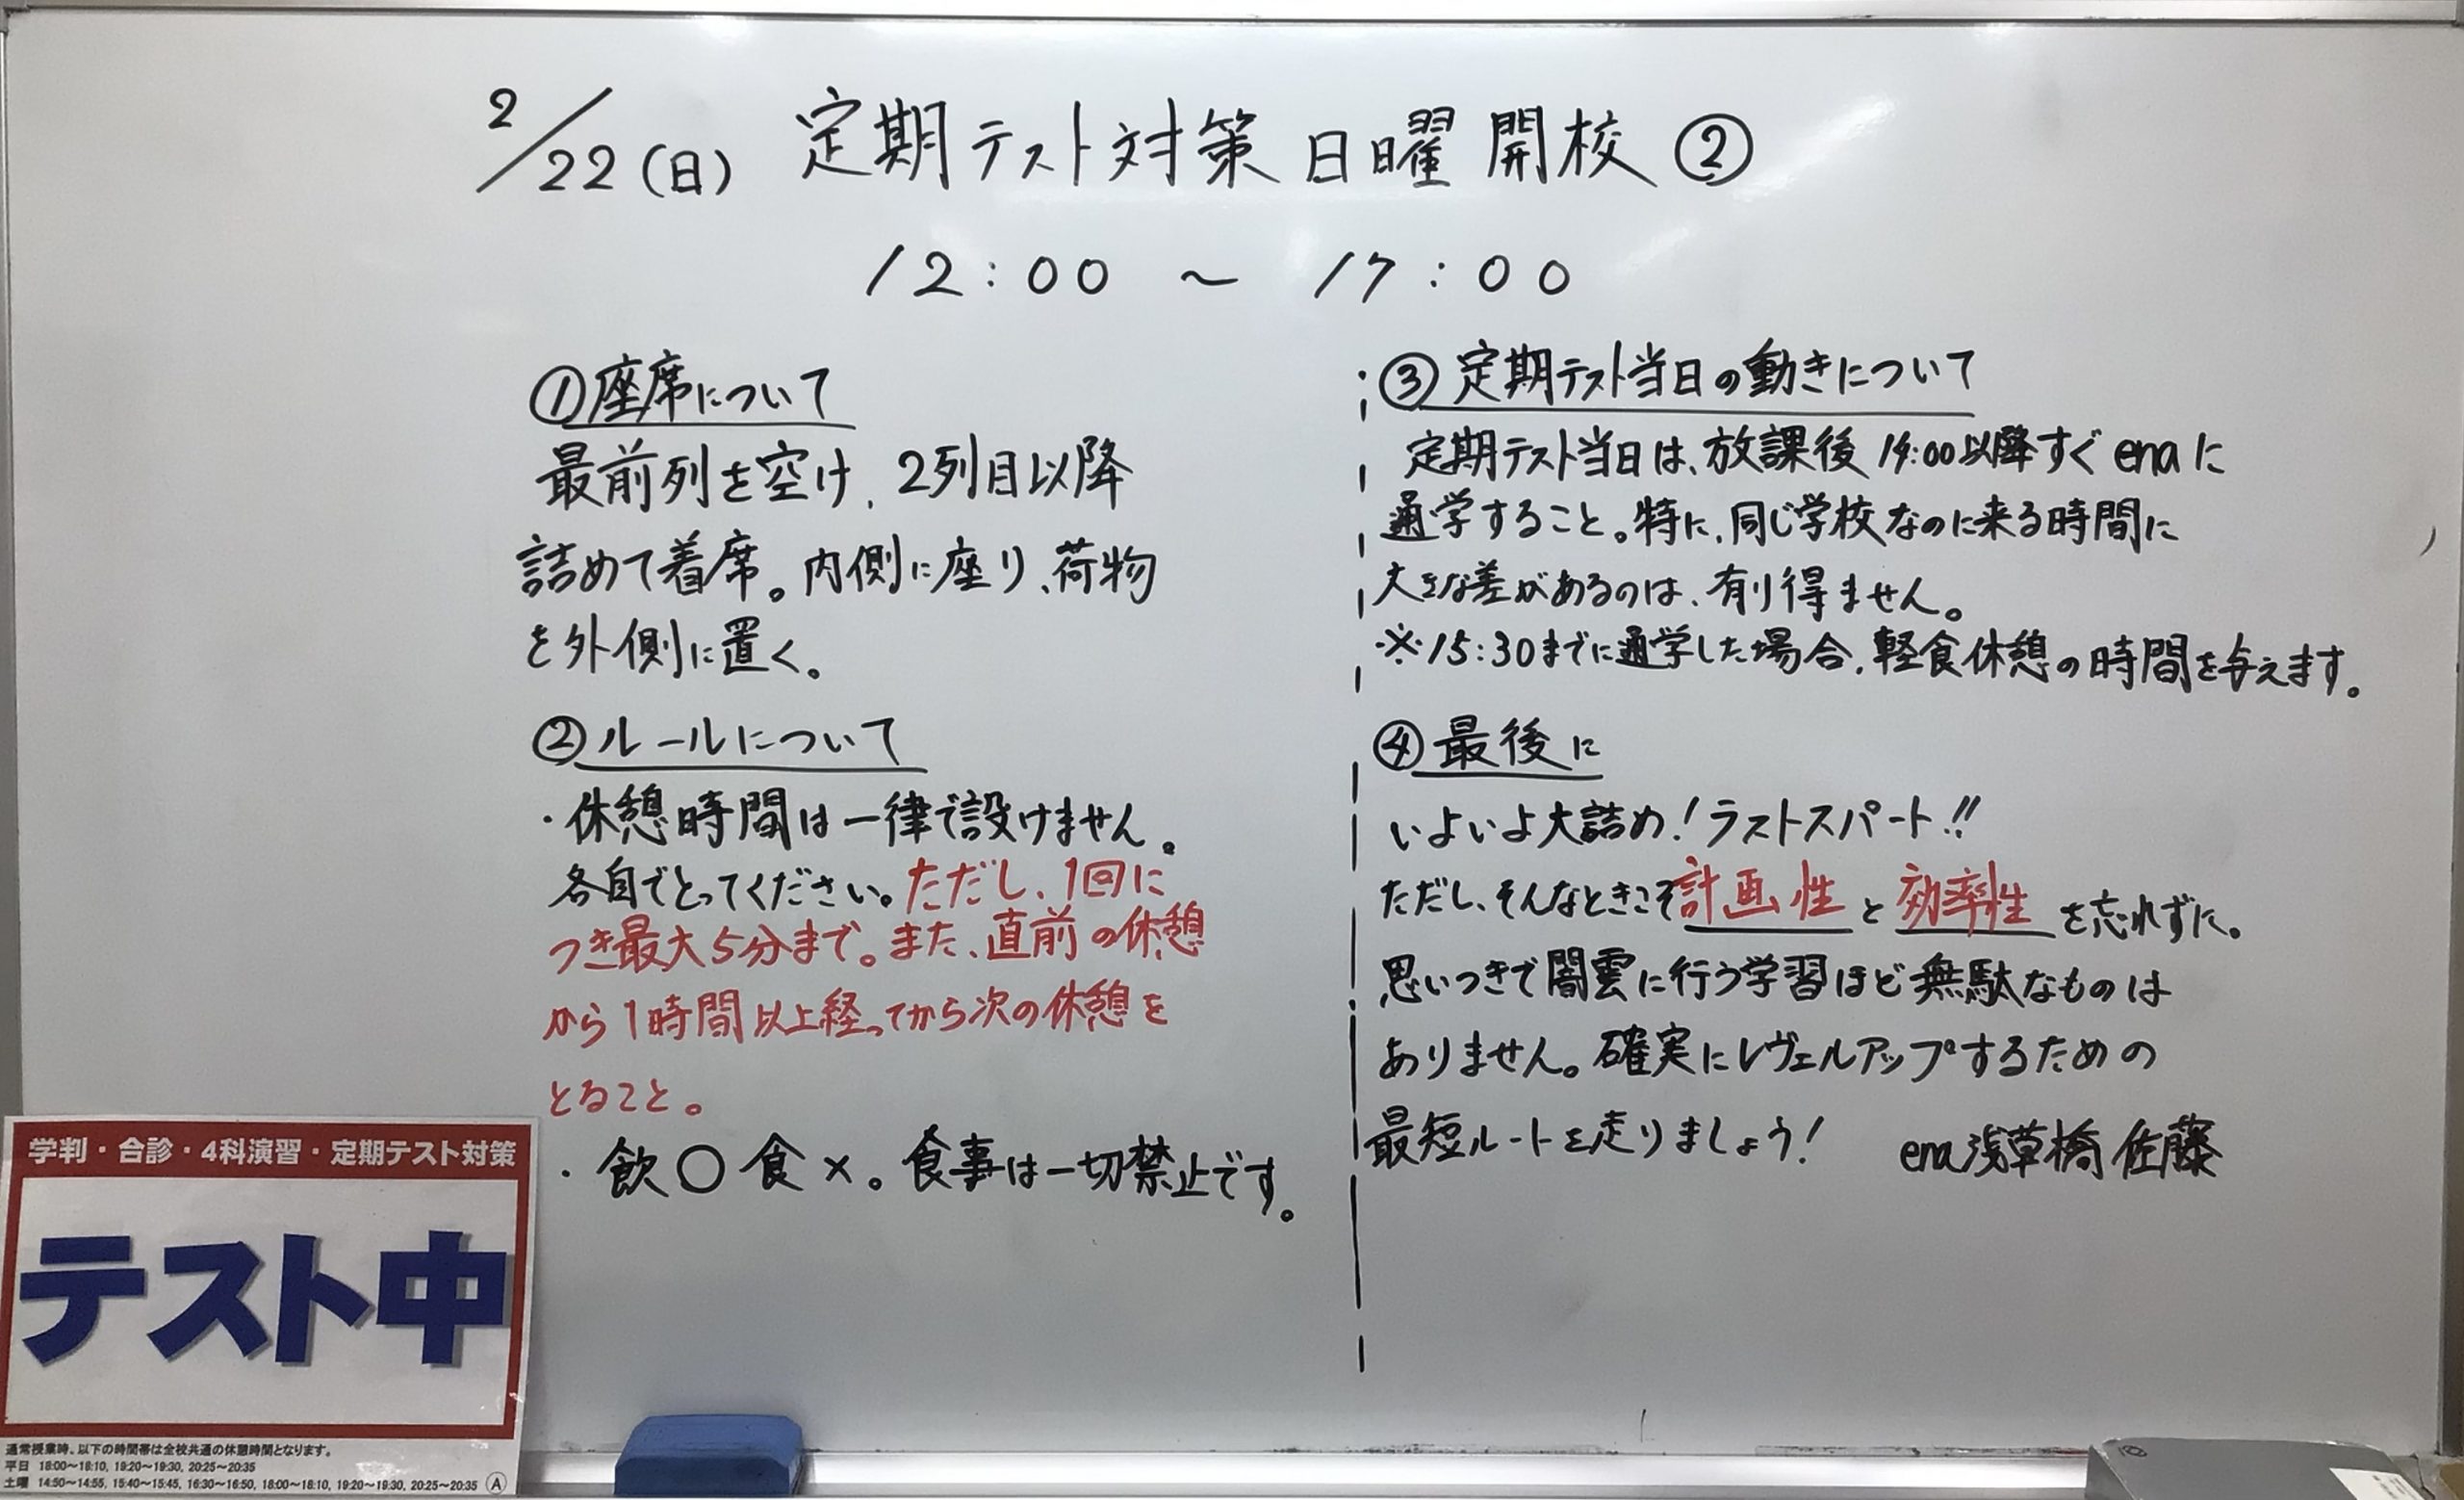 2/22(日) 定期テスト対策 日曜開校②
12:00 ～ 17:00
①座席について
最前列を空け、2列目以降
詰めて着席。内側に座り、荷物
を外側に置く。
②ルールについて
・休憩時間は一律で設けません。
各自でとってください。ただし、1回に
つき最大5分まで。また、直前の休憩
から1時間以上経ってから次の休憩を
とること。
・飲○食×。食事は一切禁止です。
③定期テスト当日の動きについて
定期テスト当日は、放課後14:00以降すぐenaに
通学すること。特に、同じ学校なのに来る時間に
大きな差があるのは、有り得ません。
※15:30までに通学した場合、軽食休憩の時間を与えます。
④最後に
いよいよ大詰め！ラストスパート!!
ただし、そんなときこそ計画性と効率性を忘れずに。
思いつきで闇雲に行う学習ほど無駄なものは
ありません。確実にレヴェルアップするための
最短ルートを走りましょう！ ena浅草橋 佐藤
学判・合診・4科演習・定期テスト対策
テスト中
通常授業時、以下の時間帯は全校共通の休憩時間となります。
平日 18:00～18:10, 19:20～19:30, 20:25～20:35
土曜 14:50～14:55, 15:40～15:45, 16:30～16:50, 18:00～18:10, 19:20～19:30, 20:25～20:35 Ⓐ